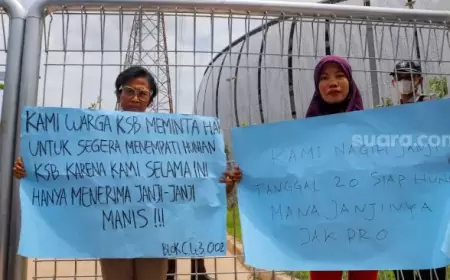 KAMI WARGA KSB MEMINTA HA
UNTUK SEGERA MENEMPATI HUNIAN
KSB KARENA KAMI SELAMA INI
HANYA MENERIMA JANJI-JANJI
MANIS !!!
BLOK C
suara.com
KAMI NAGIH JANJI
TANGGAL 20 SIAP HUN
MANA JANJINYA
JAK PRO